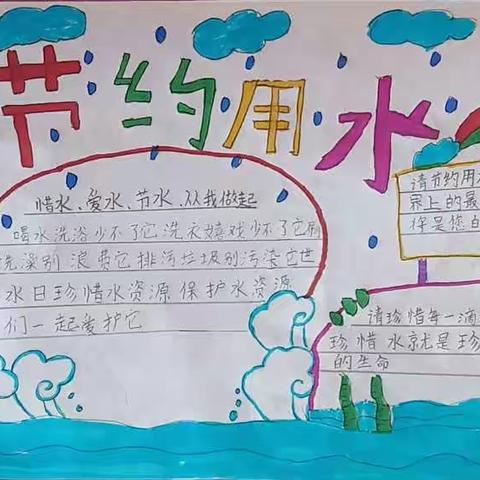 节约用水
惜水、爱水、节水、从我做起
喝水洗浴少不了它洗衣嬉戏少不了它刷
洗澡别浪费它排污垃圾别污染它世
水日珍惜水资源保护水资源
们一起爱护它
请节约用
界上的最
将是您的
请珍惜每一滴
珍惜水就是珍
的生命